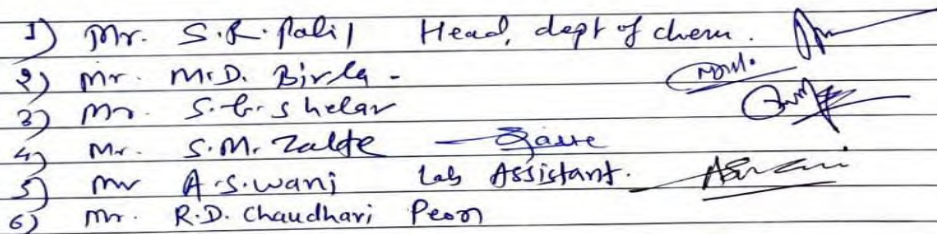 1) Mr. S.R. Patil Head, dept of chem.
2) Mr. M.D. Birla -
3) Mr. S.G. Shelar
4) Mr. S.M. Zalte
5) Mr A.S. wani Lab Assistant.
6) Mr. R.D. Chaudhari Peon